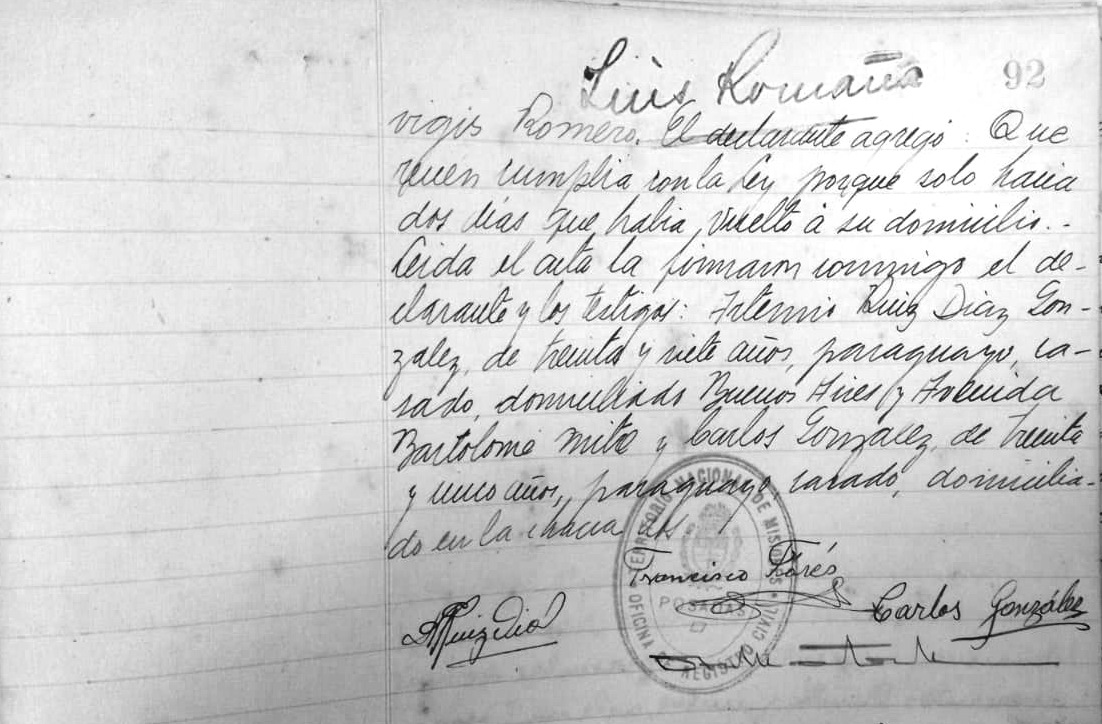 Luis Romaña
92
vigis Romero. El declarante agregó: Que
recien cumplia con la Ley porque solo hacia
dos días que habia vuelto á su domicilio.-
Leida el acta la firmaron conmigo el de-
clarante y los testigos: Artemio Ruiz Diaz Gon-
zalez, de treinta y siete años, paraguayo, ca-
sado, domiciliado Buenos Aires y Avenida
Bartolomé Mitre y Carlos Gonzalez, de treinta
y cinco años, paraguayo casado, domicilia-
do en la chacra dos
Francisco Florés
Carlos González
TERRITORIO NACIONAL DE MISIONES
POSADAS
OFICINA DE REGISTRO CIVIL